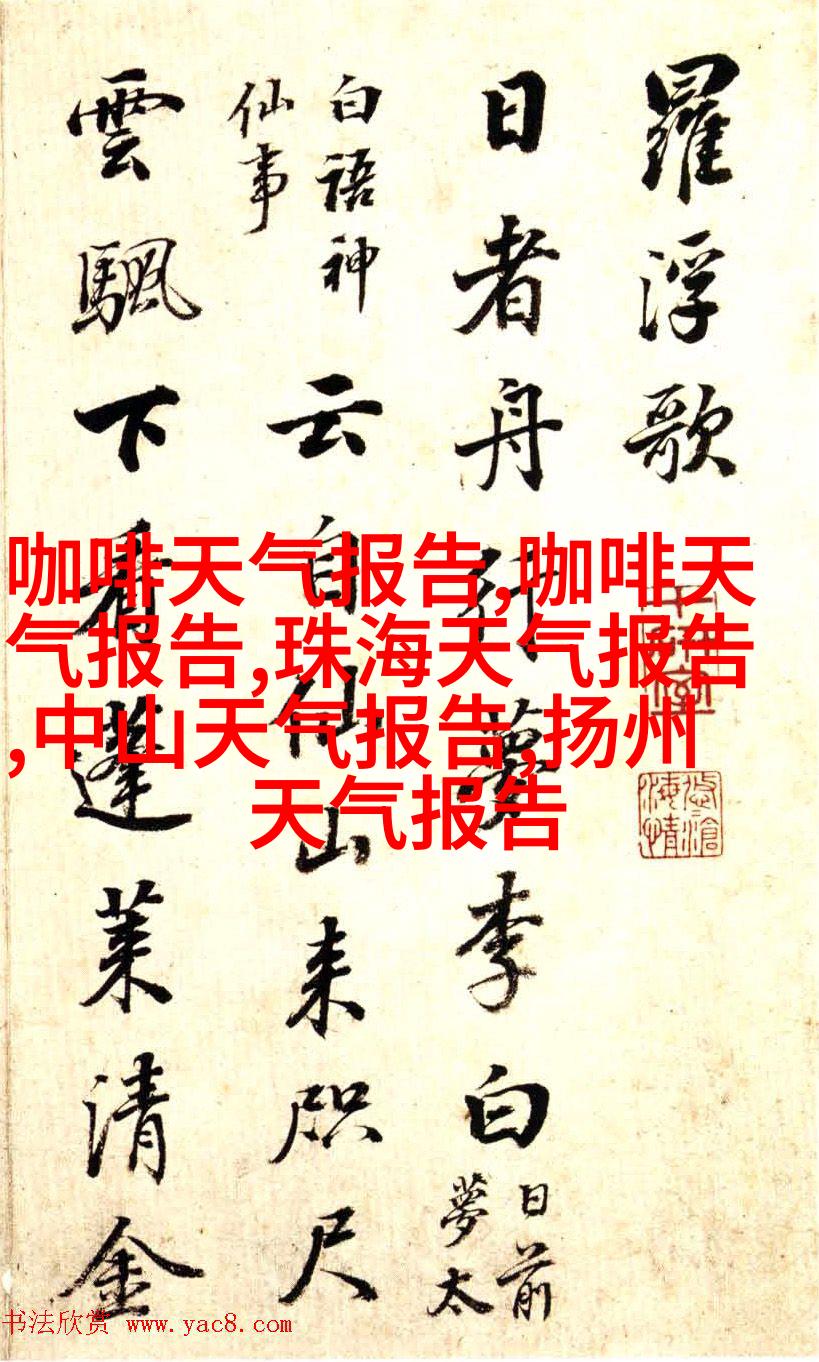 羅浮歌
日者舟行夢李白
日前
夢太
白語神
仙事
云自仙山来咫尺
雲颿下看蓬莱清金
咖啡天气报告,咖啡天
气报告,珠海天气报告
,中山天气报告,扬州
天气报告
书法欣赏 www.yac8.com